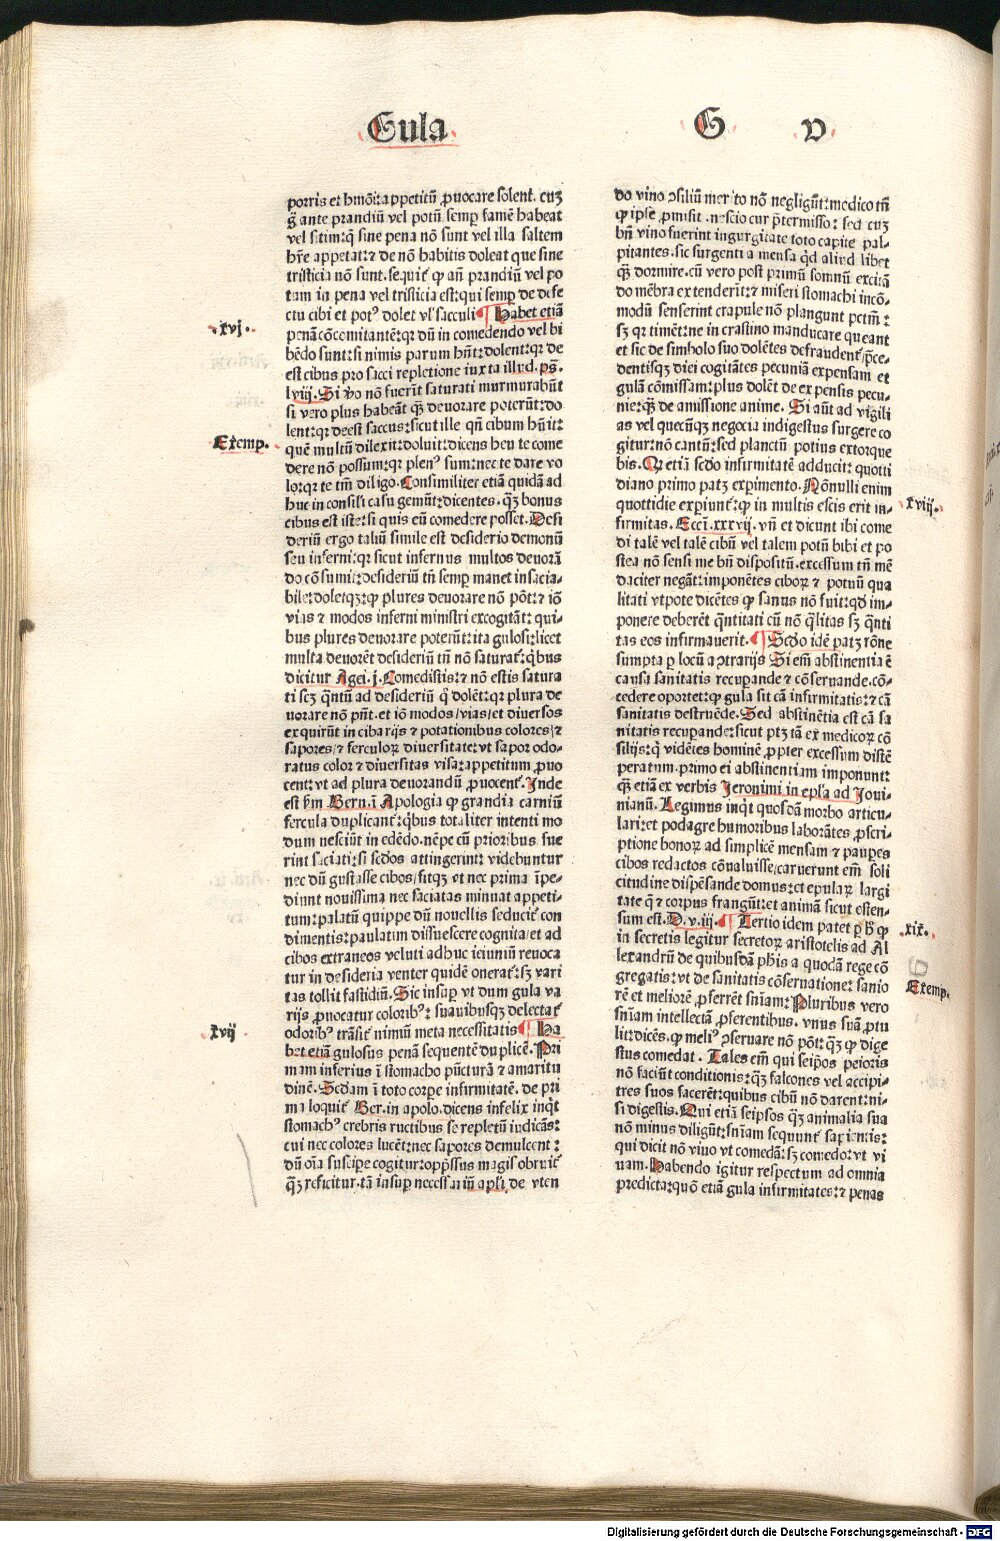 Gula
G v
porris et hmōi: appetitū ꝓuocare solent. cuꝫ
ḡ ante prandiū vel potū semꝑ famē habeat
vel sitim: q̄ sine pena nō sunt vel illa saltem
hr̄e appetat: ⁊ de nō habitis doleat que sine
tristicia nō sunt. sequit᷑ ꝙ an̄ prandiū vel po
tum in pena vel tristicia est: qui semꝑ de defe
ctu cibi et potꝰ dolet vl̓ sacculi ¶ Habet etiā
penā cōcomitantē: qꝛ dū in comedendo vel bi
bēdo sunt: si nimis parum hn̄t: dolent: qꝛ de
est cibus pro sacci repletione iuxta illud. ps̄.
lviij. Si vo nō fuerīt saturati murmurabūt
si vero plus habeāt qꝫ deuorare poterūt: do
lent: qꝛ deest saccus: sicut ille qn̄ cibum hn̄it:
quē multū dilexit: doluit: dicens heu te come
dere nō possum: qꝛ plenꝰ sum: nec te dare vo
lo: qꝛ te tm̄ diligo. Consimiliter etiā quidā ad
huc in consili casu gemūt: dicentes. qꝫ bonus
cibus est iste: si quis eū comedere posset. Desi
deriū ergo taliū simile est desiderio demonū
seu inferni: qꝛ sicut infernus multos deuorā
do cōsumit: desideriū tn̄ semꝑ manet insacia-
bile: doletqꝫ: ꝙ plures deuorare nō pōt: ⁊ iō
vias ⁊ modos inferni ministri excogitāt: qui-
bus plures deuorare poterūt: ita gulosi: licet
multa deuorēt desideriū tn̄ nō saturat᷑: qͥbus
dicitur Agei. j. Comedistis: ⁊ nō estis satura
ti scꝫ qͣntū ad desideriū qͥ dolēt: qꝛ plura de
uorare nō pn̄t. et iō modos/vias/et diuersos
exquirūt in cibarijs ⁊ potationibus colores/⁊
sapores/⁊ ferculoꝝ diuersitate: vt sapor odo-
ratus color ⁊ diuersitas visa: appetitum ꝓuo
cent: vt ad plura deuorandū ꝓuocent᷑. Inde
est ẜm Bern. ī Apologia ꝙ grandia carniū
fercula duplicant᷑: qͥbus totaliter intenti mo
dum nesciūt in edēdo. nēpe cū prioribus fue
rint saciati: si sc̄dos attingerint: videbuntur
nec dū gustasse cibos/sitqꝫ et nec prima īpe-
diunt nouissima nec saciatas minuat appeti-
tum: palatū quippe dū nouellis seducit᷑ con
dimentis: paulatim dissuescere cognita/et ad
cibos extraneos veluti adhuc ieiuniū reuoca
tur in desideria venter quidē onerat᷑: sꝫ vari
tas tollit fastidiū. Sic insuꝑ vt dum gula va
rijs ꝓuocatur coloribꝰ: suauibusqꝫ delectat᷑
odoribꝰ trāsit᷑ nimiū meta necessitatis ¶ Ha
bet etiā gulosus penā sequentē duplicē. Pri
mam inferius ī stomacho pūcturā ⁊ amaritu
dinē. Sc̄dam ī toto corpe infirmitatē. de pri
ma loquit᷑ Ber. in apolo. dicens infelix inqͥt
stomachꝰ crebris ructibus se repletū iudicās:
cui nec colores lucēt: nec sapores demulcent:
dū oīa suscipe cogitur: opp̄ssus magis obruit᷑
qꝫ reficitur. tā insuꝑ necessariū apl̓i. de vten
do vino ꝯsiliū merito nō negligūt: medico tn̄
ꝙ ipse ꝓmisit. nescio cur p̄termisso: sed cuꝫ
bn̄ vino fuerint ingurgitate toto capite pal-
pitantes. sic surgenti a mensa qͥd aliud libet
qꝫ dormire. cū vero post primū somnū excitā
do mēbra extenderīt: ⁊ miseri stomachi incō-
modū senserint crapule nō plangunt pctm̄:
sꝫ qꝛ timēt: ne in crastino manducare queant
et sic de simbolo suo dolētes defraudent᷑/p̄ce-
dentisqꝫ diei cogitātes pecuniā expensam et
gulā cōmissam: plus dolēt de expensis pecu-
nie: qꝫ de amissione anime. Si aūt ad vigili
as vel quecūqꝫ negocia indigestus surgere co
gitur: nō cantū: sed planctū potius extorque
bis. Qꝛ etiā sc̄do infirmitatē adducit: quotti
diano primo patꝫ exꝑimento. Nōnulli enim
quottidie exꝑiunt᷑: ꝙ in multis escis erit in-
firmitas. Ecci. xxxvij. vn̄ et dicunt ibi come
di talē vel talē cibū vel talem potū bibi et po
stea nō sensi me bn̄ dispositū. excessum tn̄ mē
daciter negāt: imponētes ciboꝝ ⁊ potuū qua
litati vtpote dicētes ꝙ sanus nō fuit: qd̓ im-
ponere deberēt qͣntitati cū nō qͣlitas sꝫ qͣnti
tas eos infirmauerit. ¶ Sc̄do idē patꝫ rōne
sumpta ꝑ locū a ꝯtrarijs Si em̄ abstinentia ē
causa sanitatis recuꝑande ⁊ cōseruande. cō-
cedere oportet: ꝙ gula sit cā infirmitatis: ⁊ cā
sanitatis destruēde. Sed abstinētia est cā sa
nitatis recuꝑande: sicut ptꝫ tā ex medicoꝝ cō
silijs: qͥ vidētes hominē ꝓpter excessum distē
peratum. primo ei abstinentiam imponunt:
qꝫ etiā ex verbis Jeronimi in epl̓a ad Joui-
nianū. Legimus inqͥt quosdā morbo articu-
lari: et podagre humoribus laborātes ꝓscri-
ptione bonoꝝ ad simplicē mensam ⁊ pauꝑes
cibos redactos cōualuisse/caruerunt em̄ soli
citudine dispēsande domus: et epulaꝝ largi
tate q̄ ⁊ corpus frangūt: et animā sicut osten-
sum est. D. v. iij. ¶ Tertio idem patet ꝑ hͦ ꝙ
in secretis legitur secretoꝝ aristotelis ad Al
lexandrū de quibusdā ph̄is a quodā rege cō
gregatis: vt de sanitatis cōseruatione: sanio
rē et meliorē ꝓferrēt sniam: Pluribus vero
sniam intellectā ꝓferentibus. vnus suā ꝓtu
lit: dicēs. ꝙ meliꝰ ꝯseruare nō pōt: qꝫ ꝙ dige
stus comedat. Tales em̄ qui seip̄os peioris
nō faciūt conditionis: qꝫ falcones vel accipi-
tres suos facerēt: quibus cibū nō darent: ni-
si digestis. Qui etiā seipsos qꝫ animalia sua
nō minus diligūt: sniam sequunt᷑ sapientis:
qui dicit nō viuo vt comedā: sꝫ comedo: vt vi
uam. Habendo igitur respectum ad omnia
predicta: quō etiā gula infirmitates: ⁊ penas
xvj.
Exemp.
xvij
xviij.
xix.
Exemp.
Digitalisierung gefördert durch die Deutsche Forschungsgemeinschaft - DFG